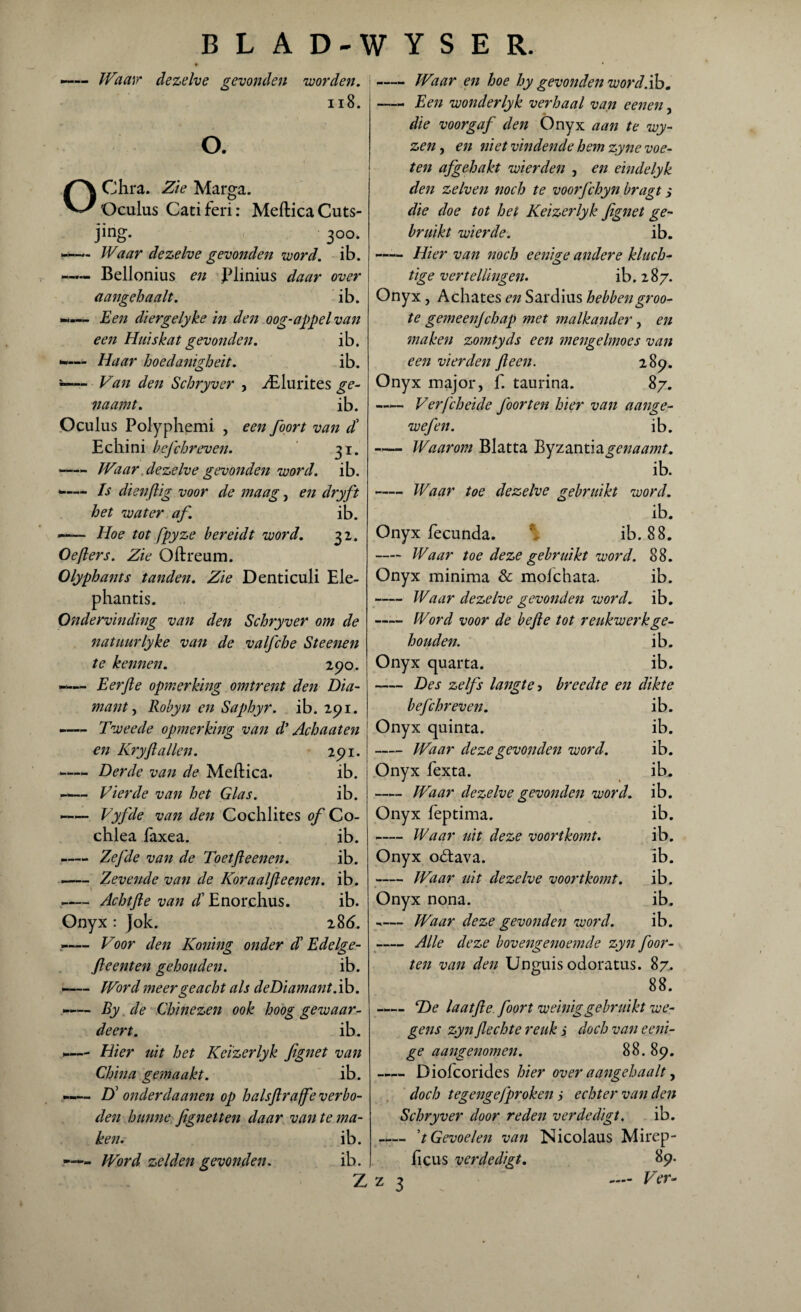 BLAD-WYSER.
—— Waar dezelve gevonden worden.
118.
O.
OChra. Zie Marga.
Oculus Cati feri: Meſtica Cuts-
jing. 300.
—— Waar dezelve gevonden word. ib.
—— Bellonius en Plinius daar over
aangehaalt. ib.
—— Een diergelyke in den oog-appel van
een Huiskat gevonden. ib.
—— Haar hoedanigheit. ib.
—— Van den Schryver , Ælurites ge-
naamt. ib.
Oculus Polyphemi , een ſoort van d'
Echini beſchreven. 31.
—— Waar dezelve gevonden word. ib.
—— Is dienſtig voor de maag, en dryft
het water af. ib.
—— Hoe tot ſpyze bereidt word. 32.
Oeſters. Zie Oſtreum.
Olyphants tanden. Zie Denticuli Ele-
phantis.
Ondervinding van den Schryver om de
natuurlyke van de valſche Steenen
te kennen. 290.
—— Eerſte opmerking omtrent den Dia-
mant, Robyn en Saphyr. ib. 291.
—— Tweede opmerking van d' Achaaten
en Kryſtallen. 291.
—— Derde van de Meſtica. ib.
—— Vierde van het Glas. ib.
—— Vyfde van den Cochlites of Co-
chlea ſaxea. ib.
—— Zeſde van de Toetſteenen. ib.
—— Zevende van de Koraalſteenen. ib.
—— Achtſte van d' Enorchus. ib.
Onyx: Jok. 286.
—— Voor den Koning onder d' Edelge-
ſteenten gehouden. ib.
—— Word meer geacht als de Diamant. ib.
—— By de Chinezen ook hoog gewaar-
deert. ib.
—— Hier uit het Keizerlyk ſignet van
China gemaakt. ib.
—— D' onderdaanen op halsſtraffe verbo-
den hunne ſignetten daar van te ma-
ken. ib.
—— Word zelden gevonden. ib.
—— Waar en hoe hy gevonden word. ib.
—— Een wonderlyk verhaal van eenen,
die voorgaf den Onyx aan te wy-
zen, en niet vindende hem zyne voe-
ten afgehakt wierden , en eindelyk
den zelven noch te voorſchyn bragt ;
die doe tot het Keizerlyk ſignet ge-
bruikt wierde. ib.
—— Hier van noch eenige andere kluch-
tige vertellingen. ib. 287.
Onyx, Achates en Sardius hebben groo-
te gemeenſchap met malkander, en
maken zomtyds een mengelmoes van
een vierden ſteen. 289.
Onyx major, ſ. taurina. 87.
—— Verſcheide ſoorten hier van aange-
weſen. ib.
—— Waarom Blatta Byzantia genaamt.
ib.
—— Waar toe dezelve gebruikt word.
ib.
Onyx ſecunda. ib. 88.
—— Waar toe deze gebruikt word. 88.
Onyx minima & moſchata. ib.
—— Waar dezelve gevonden word. ib.
—— Word voor de beſte tot reukwerk ge-
houden. ib.
Onyx quarta. ib.
—— Des zelfs langte, breedte en dikte
beſchreven. ib.
Onyx quinta. ib.
—— Waar deze gevonden word. ib.
Onyx ſexta. ib.
—— Waar dezelve gevonden word. ib.
Onyx ſeptima. ib.
—— Waar uit deze voortkomt. ib.
Onyx octava. ib.
—— Waar uit dezelve voortkomt. ib.
Onyx nona. ib.
—— Waar deze gevonden word. ib.
—— Alle deze bovengenoemde zyn ſoor-
ten van den Unguis odoratus. 87.
88.
—— De laatſte ſoort weinig gebruikt we-
gens zyn ſlechte reuk ; doch van eeni-
ge aangenomen. 88. 89.
—— Dioſcorides hier over aangehaalt,
doch tegengeſproken ; echter van den
Schryver door reden verdedigt. ib.
—— 't Gevoelen van Nicolaus Mirep-
ſicus verdedigt. 89.
Zz 3 —— Ver-